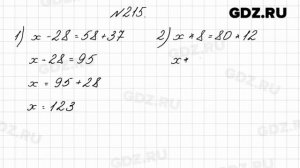 GDZ.RU
№215.
1) x - 28 = 58 + 37
x - 28 = 95
x = 95 + 28
x = 123
2) x * 8 = 80 * 12
x *
GDZ.RU